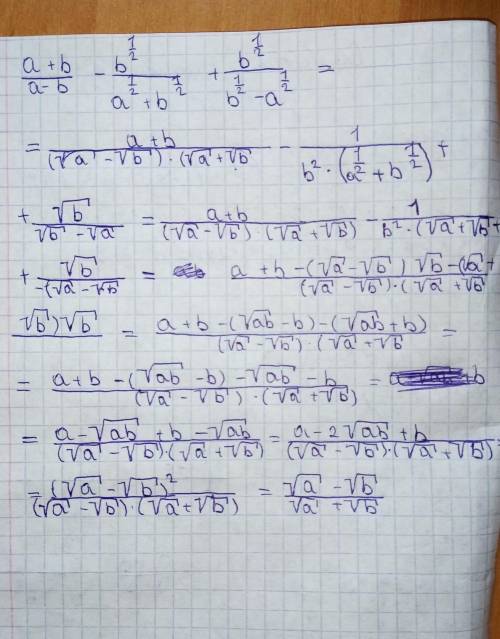 (a + b)/(a - b) - b^(1/2)/(a^(1/2) + b^(1/2)) + b^(1/2)/(b^(1/2) - a^(1/2)) =
= (a + b)/((√a - √b) · (√a + √b)) - 1/(b² · (a^(1/2) + b^(1/2))) +
+ √b/(√b - √a) = (a + b)/((√a - √b) · (√a + √b)) - 1/(b² · (√a + √b)) +
+ √b/(-(√a - √b = (a + b - (√a - √b) √b - (√a +)/((√a - √b) · (√a + √b)
√b) √b = (a + b - (√ab - b) - (√ab + b))/((√a - √b) · (√a + √b) =
= (a + b - (√ab - b) - √ab - b)/((√a - √b) · (√a + √b)) = + b
= (a - √ab + b - √ab)/((√a - √b) · (√a + √b)) = (a - 2√ab + b)/((√a - √b) · (√a + √b)) =
= (√a - √b)²/((√a - √b) · (√a + √b)) = (√a - √b)/(√a + √b)